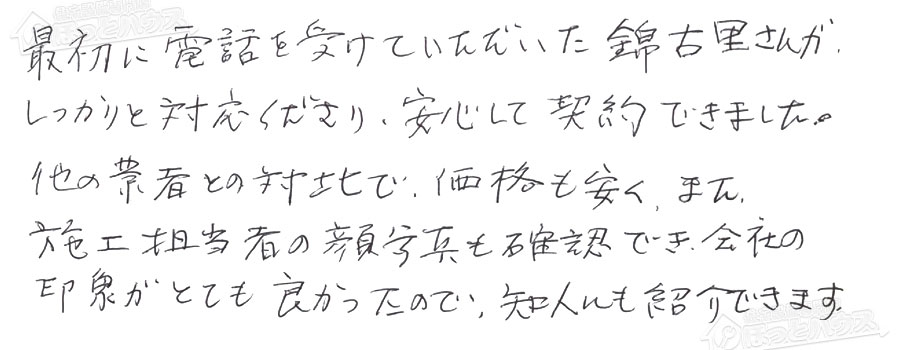 最初に電話を受けていただいた錦古里さんが、
しっかりと対応くださり、安心して契約できました。
他の業者との対比で、価格も安く、また、
施工担当者の顔写真も確認でき、会社の
印象がとても良かったので、知人にも紹介できます。
ほっとハウス
ほっとハウス